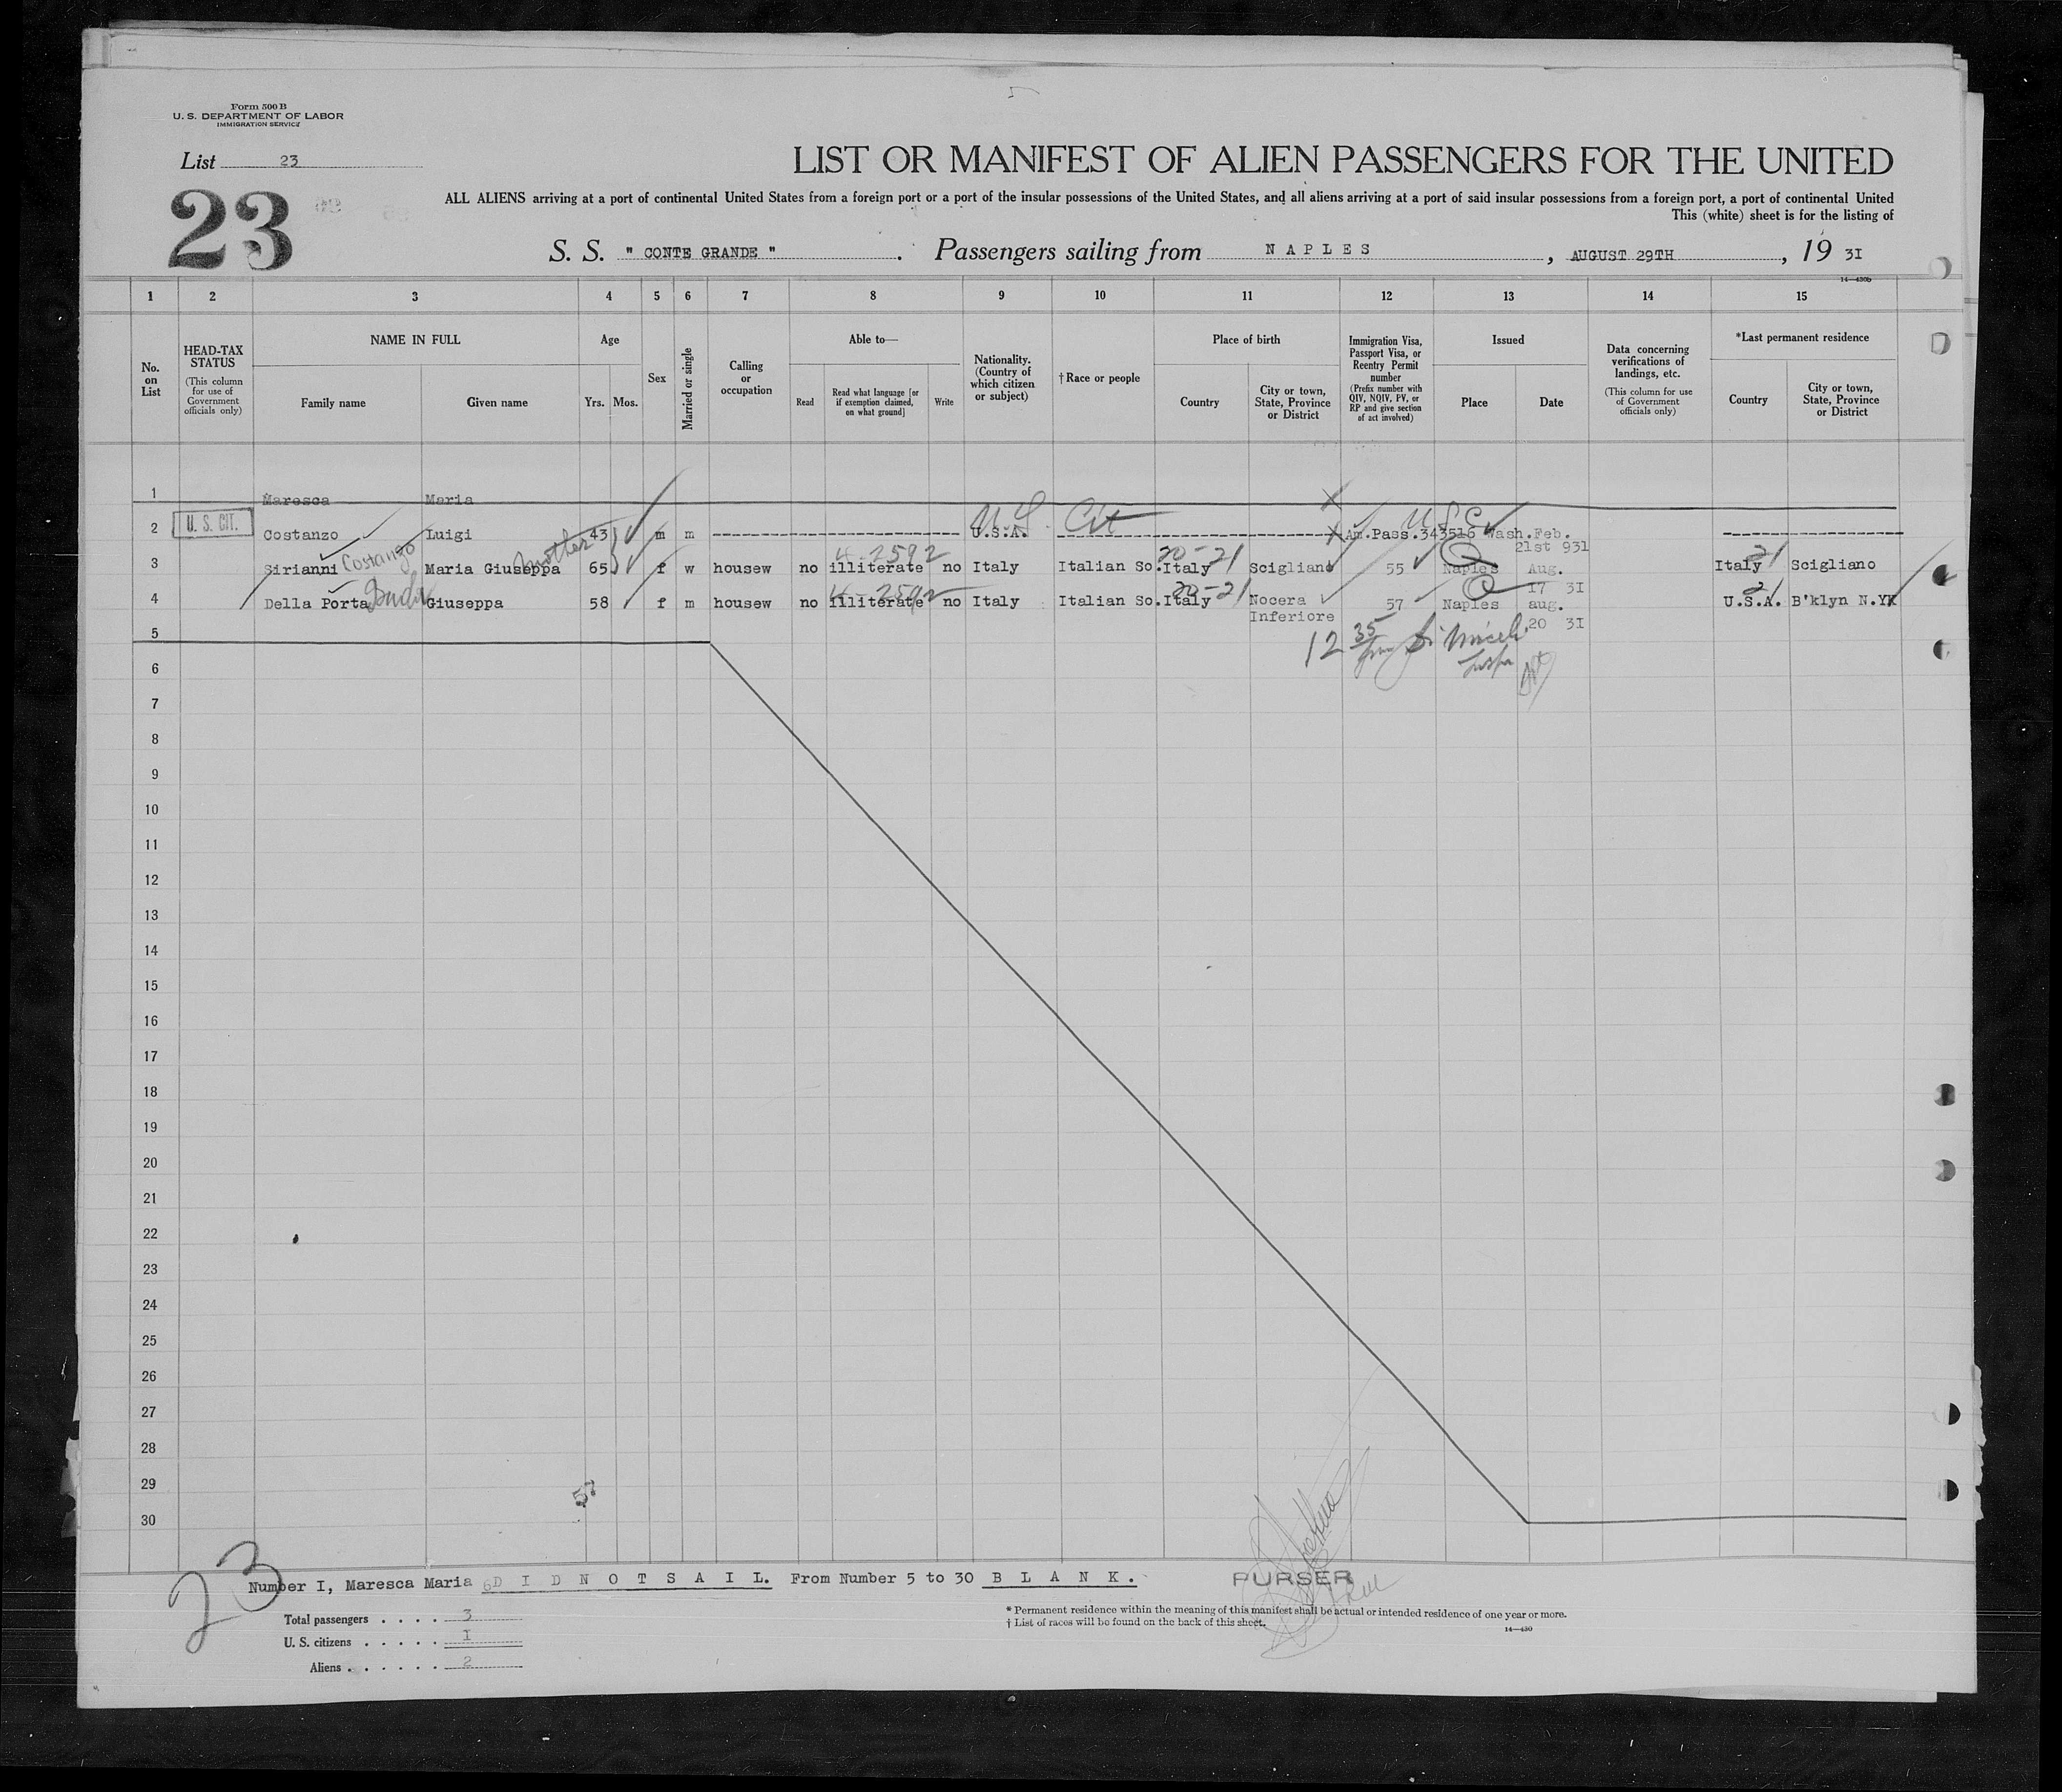 Form 500 B
U. S. DEPARTMENT OF LABOR
IMMIGRATION SERVICE
List 23
LIST OR MANIFEST OF ALIEN PASSENGERS FOR THE UNITED
23
ALL ALIENS arriving at a port of continental United States from a foreign port or a port of the insular possessions of the United States, and all aliens arriving at a port of said insular possessions from a foreign port, a port of continental United
This (white) sheet is for the listing of
S. S. " CONTE GRANDE " . Passengers sailing from N A P L E S , AUGUST 29TH , 19 3I
14—430b
1 2 3 4 5 6 7 8 9 10 11 12 13 14 15
No. on List
HEAD-TAX STATUS
(This column for use of Government officials only)
NAME IN FULL
Family name
Given name
Age
Yrs. Mos.
Sex
Married or single
Calling or occupation
Able to—
Read
Read what language [or if exemption claimed, on what ground]
Write
Nationality. (Country of which citizen or subject)
†Race or people
Place of birth
Country
City or town, State, Province or District
Immigration Visa, Passport Visa, or Reentry Permit number
(Prefix number with QIV, NQIV, PV, or RP and give section of act involved)
Issued
Place
Date
Data concerning verifications of landings, etc.
(This column for use of Government officials only)
*Last permanent residence
Country
City or town, State, Province or District
1 Maresca Maria
U. S. Cit U S C
2 U. S. CIT. Costanzo Luigi 43 m m U.S.A. Am.Pass.343516 Wash.Feb. 21st 931
Costanzo Mother 4-2592 20-21 21
3 Sirianni Maria Giuseppa 65 f w housew no illiterate no Italy Italian So. Italy Scigliano 55 Naples Aug. 17 3I Italy Scigliano
4-2592 20-21 21
4 Della Porta Giuseppa 58 f m housew no illiterate no Italy Italian So. Italy Nocera Inferiore 57 Naples aug. 20 3I U.S.A. B'klyn N.YK
5
12 35
6
7
8
9
10
11
12
13
14
15
16
17
18
19
20
21
22
23
24
25
26
27
28
29
57
30
23
Number I, Maresca Maria D I D N O T S A I L. From Number 5 to 30 B L A N K .
PURSER
Total passengers . . . . 3
U. S. citizens . . . . . I
Aliens . . . . . . 2
* Permanent residence within the meaning of this manifest shall be actual or intended residence of one year or more.
† List of races will be found on the back of this sheet.
14—430